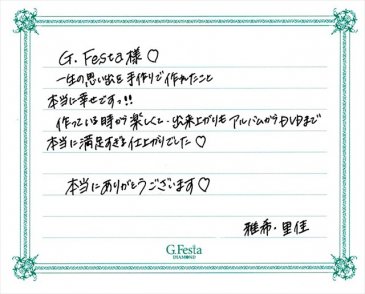 G. Festa様♡
一生の思い出を手作りで作れたこと
本当に幸せですっ!!
作っている時から楽しくて、出来上がりも アルバムからDVDまで
本当に満足すぎる仕上がりでした♡
本当にありがとうございます♡
雅希・里佳
G.Festa
DIAMOND